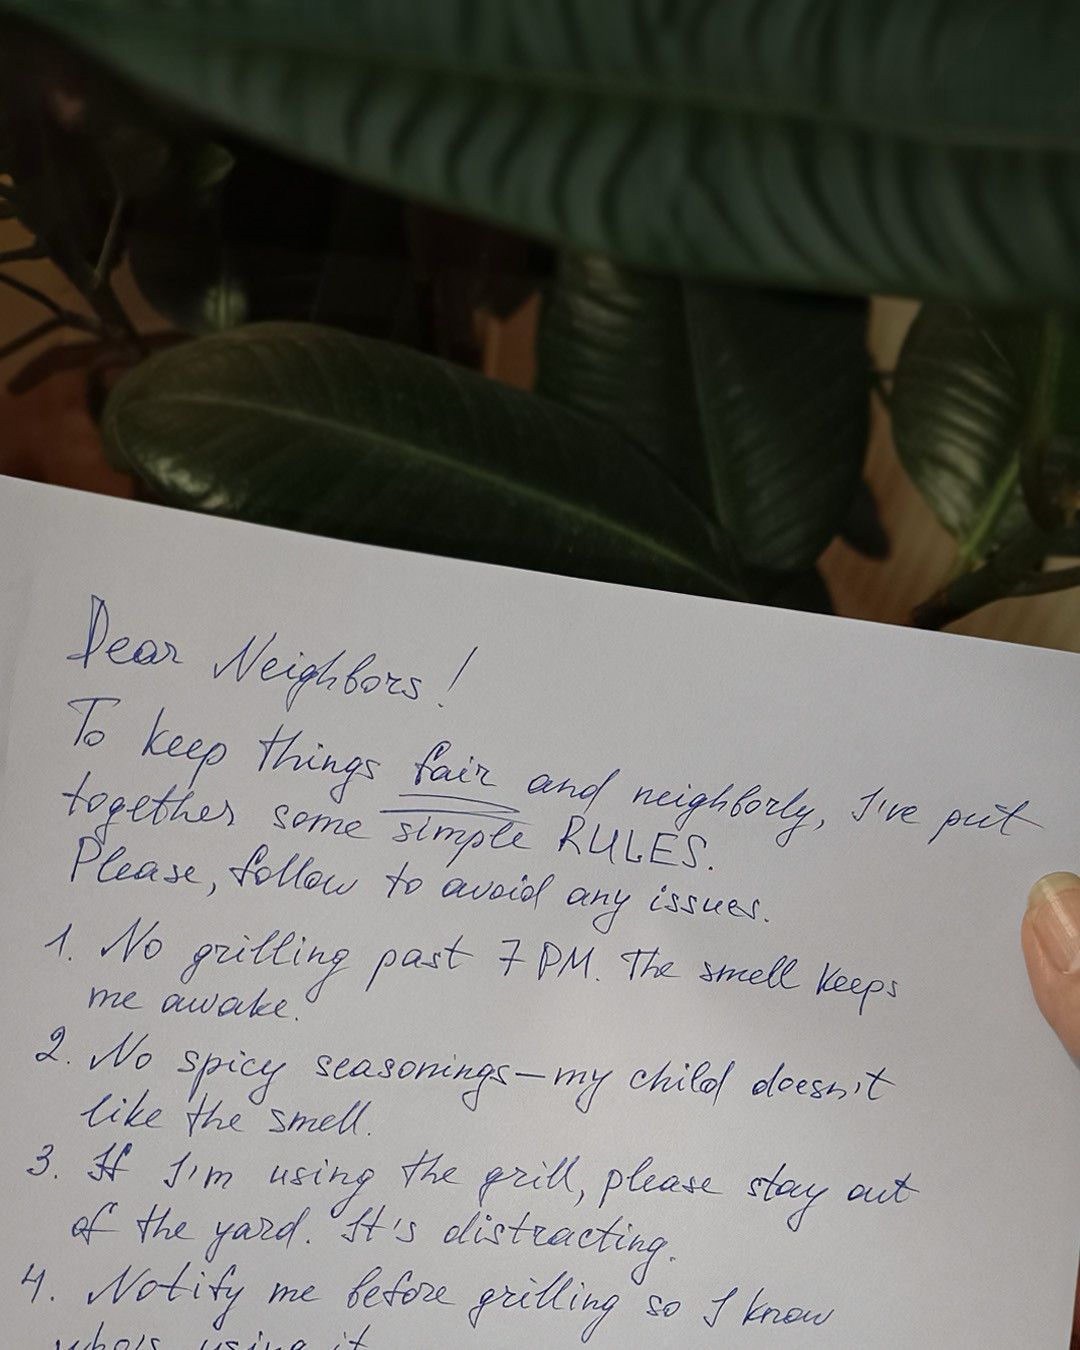 Dear Neighbors!
To keep things fair and neighborly, I've put
together some simple RULES.
Please, follow to avoid any issues.
1. No grilling past 7 PM. The smell keeps
me awake.
2. No spicy seasonings—my child doesn't
like the smell.
3. If I'm using the grill, please stay out
of the yard. It's distracting.
4. Notify me before grilling so I know
who's using it